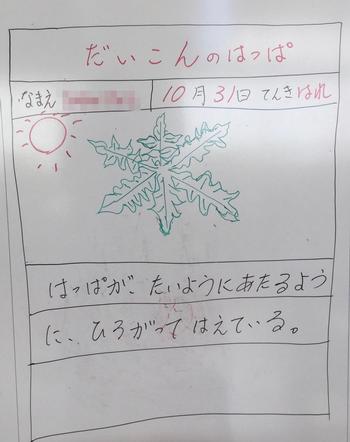 だいこんのはっぱ
なまえ
10月31日 てんき はれ
はっぱが、たいようにあたるよう
に、ひろがって はえている。